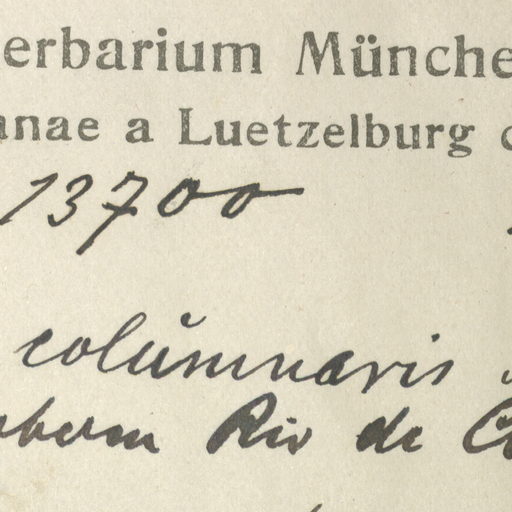 erbarium Münche
anae a Luetzelburg c
13700
columnaris
Rio de